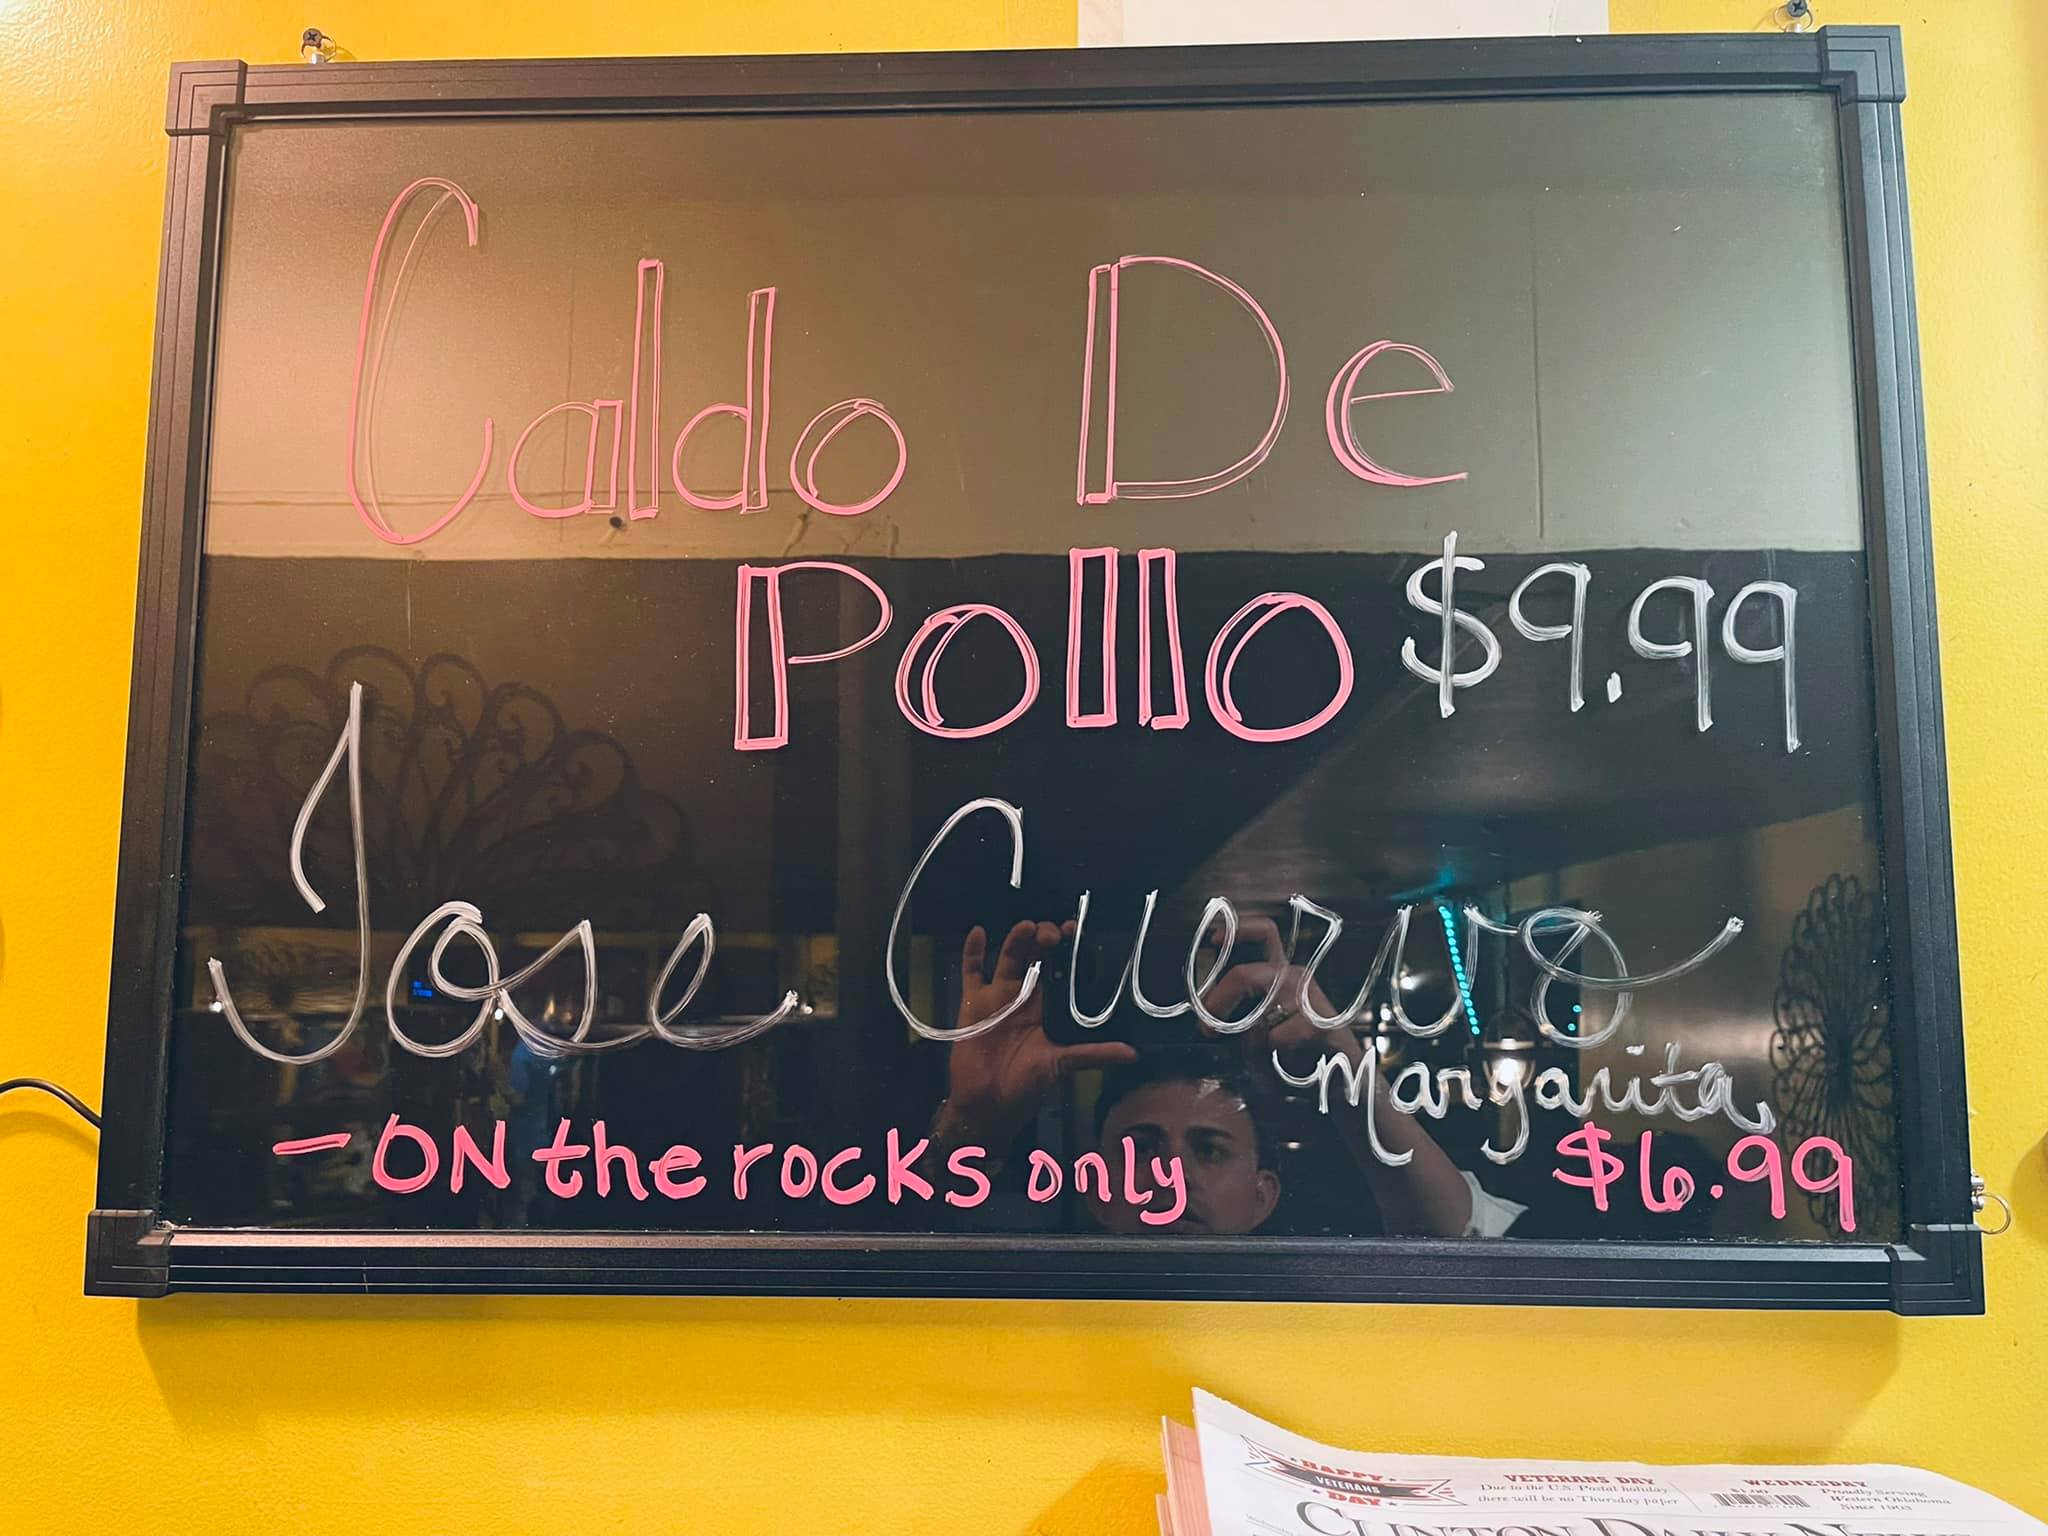 Caldo De
Pollo $9.99
Jose Cuervo
Margarita
- ON the rocks only $6.99
HAPPY
VETERANS
DAY
VETERANS DAY
Due to the U.S. Postal holiday
there will be no Thursday paper
WEDNESDAY
$1.00
Proudly Serving
Western Oklahoma
Since 1903
CLINTON DAILY